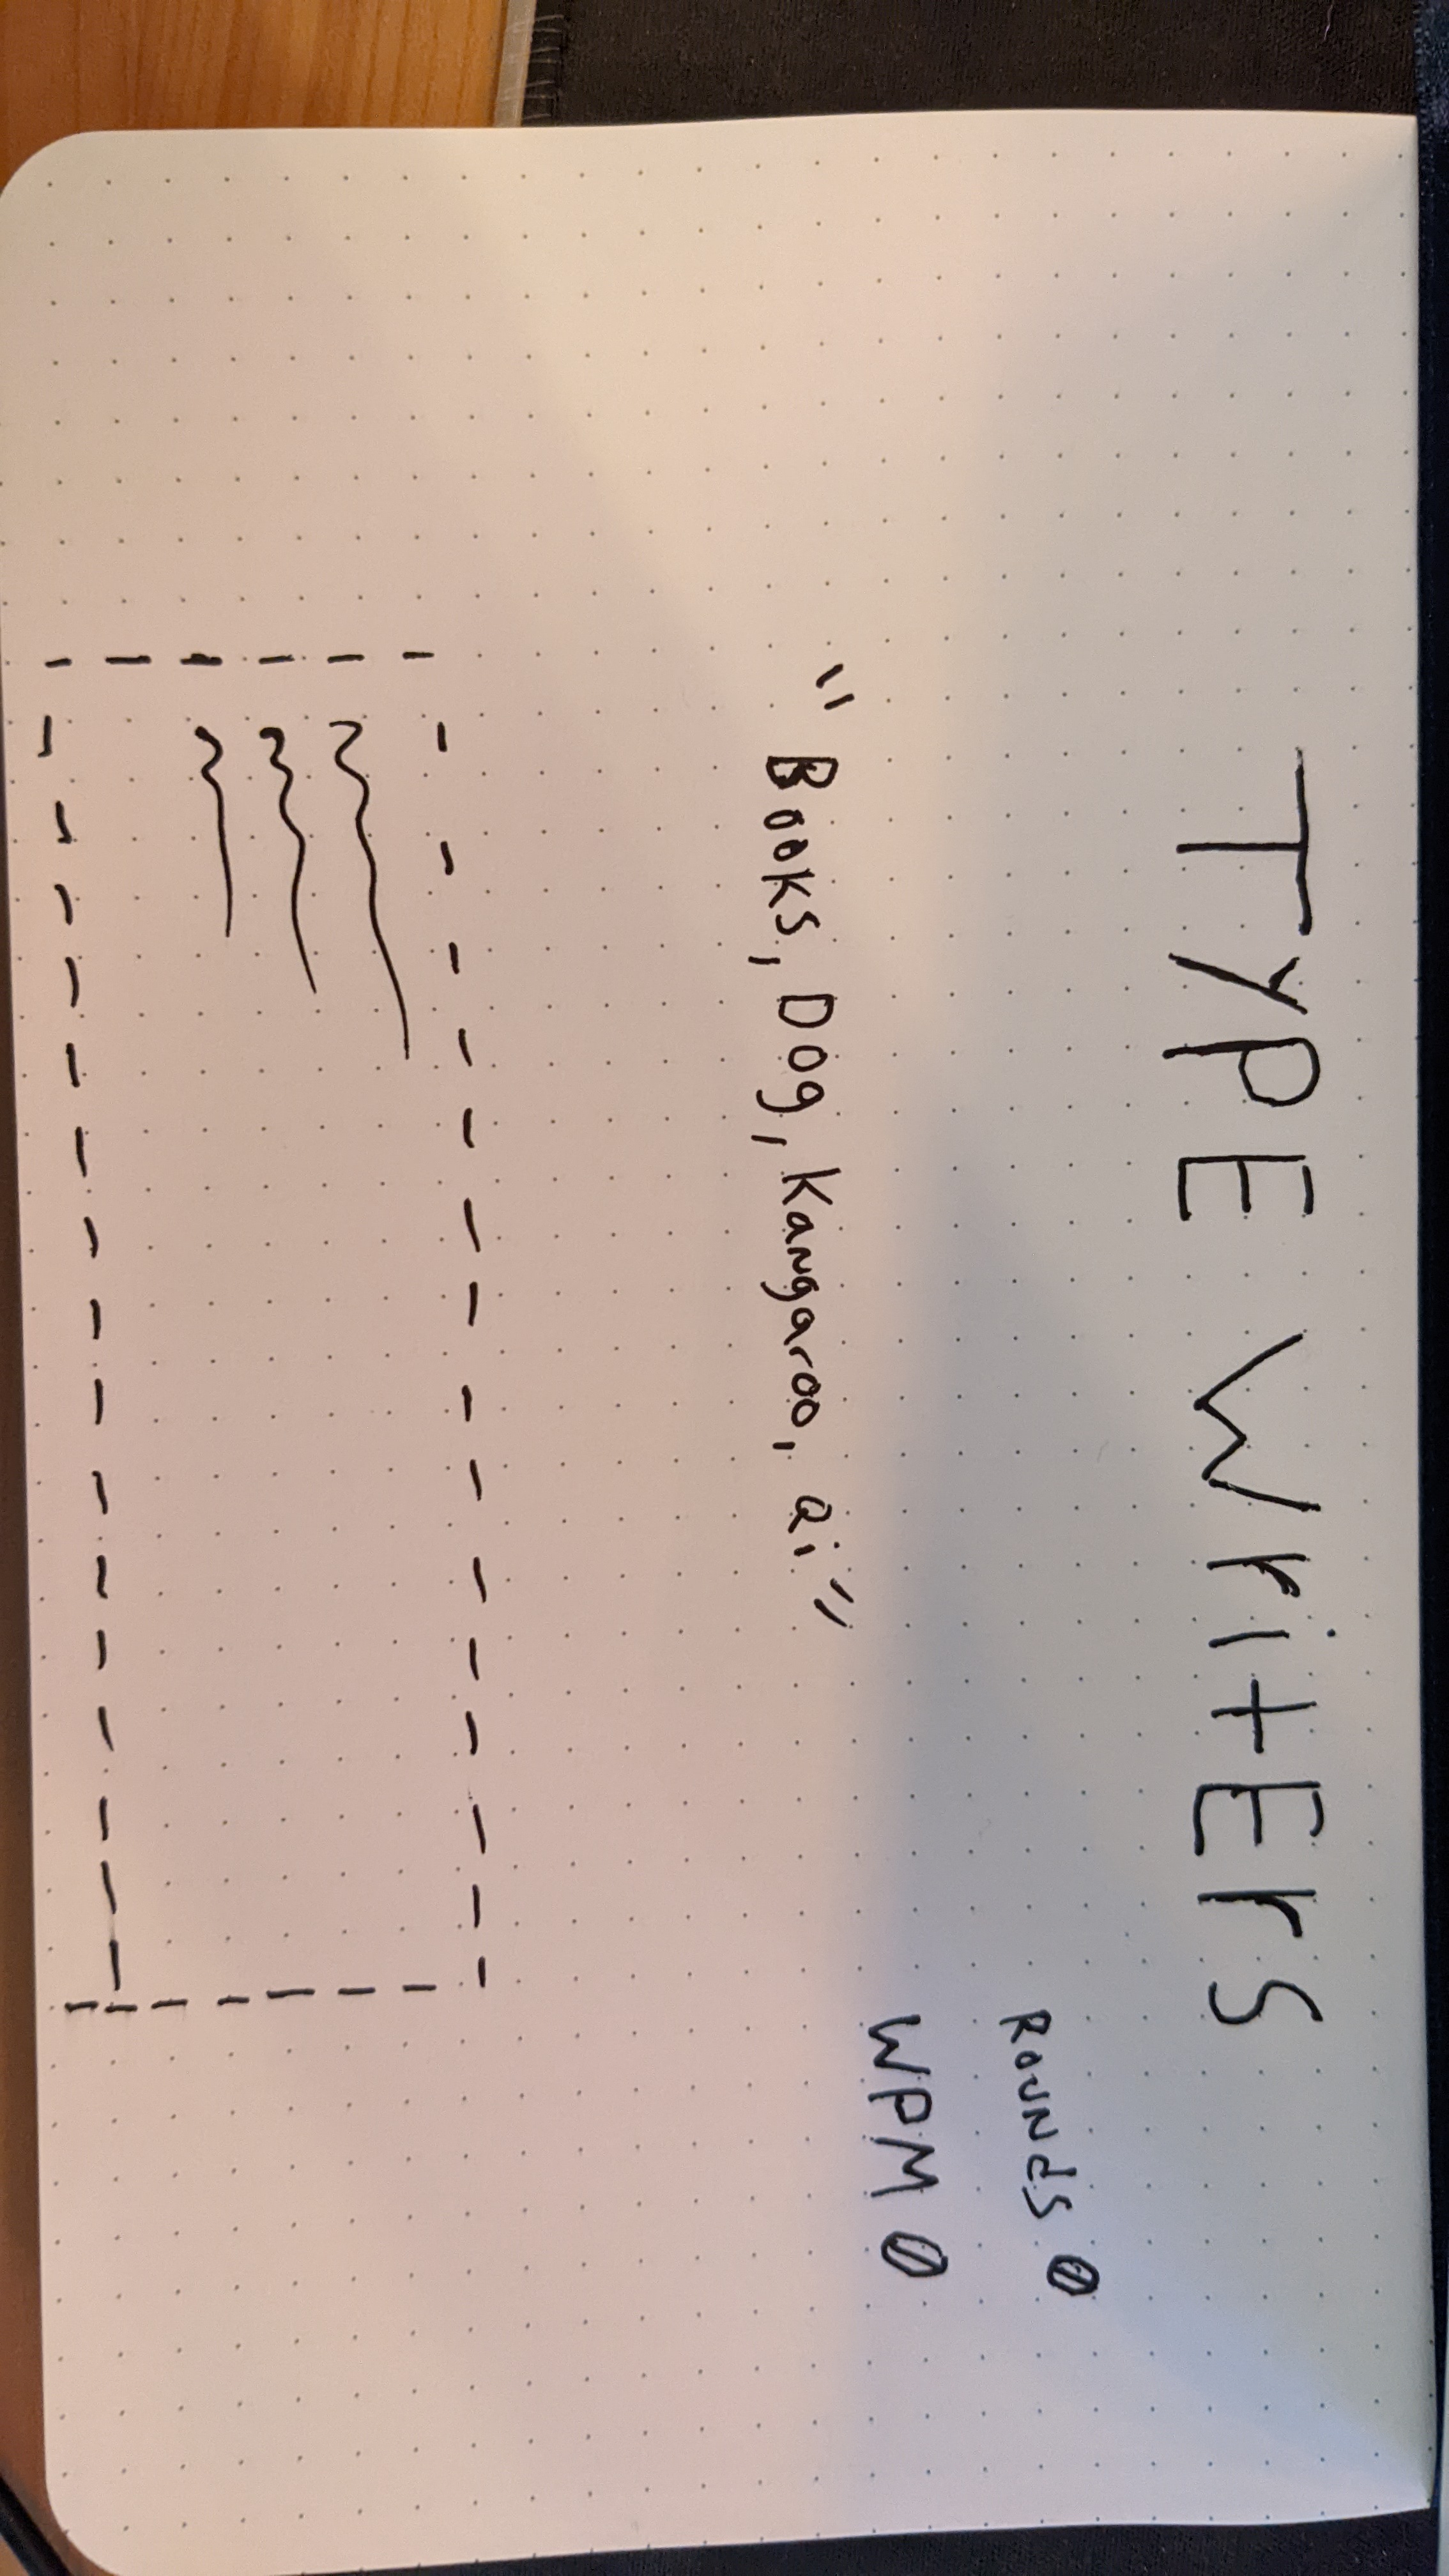 TYPE WritErS
Rounds 0
WPM 0
"Books, Dog, Kangaroo, ai"